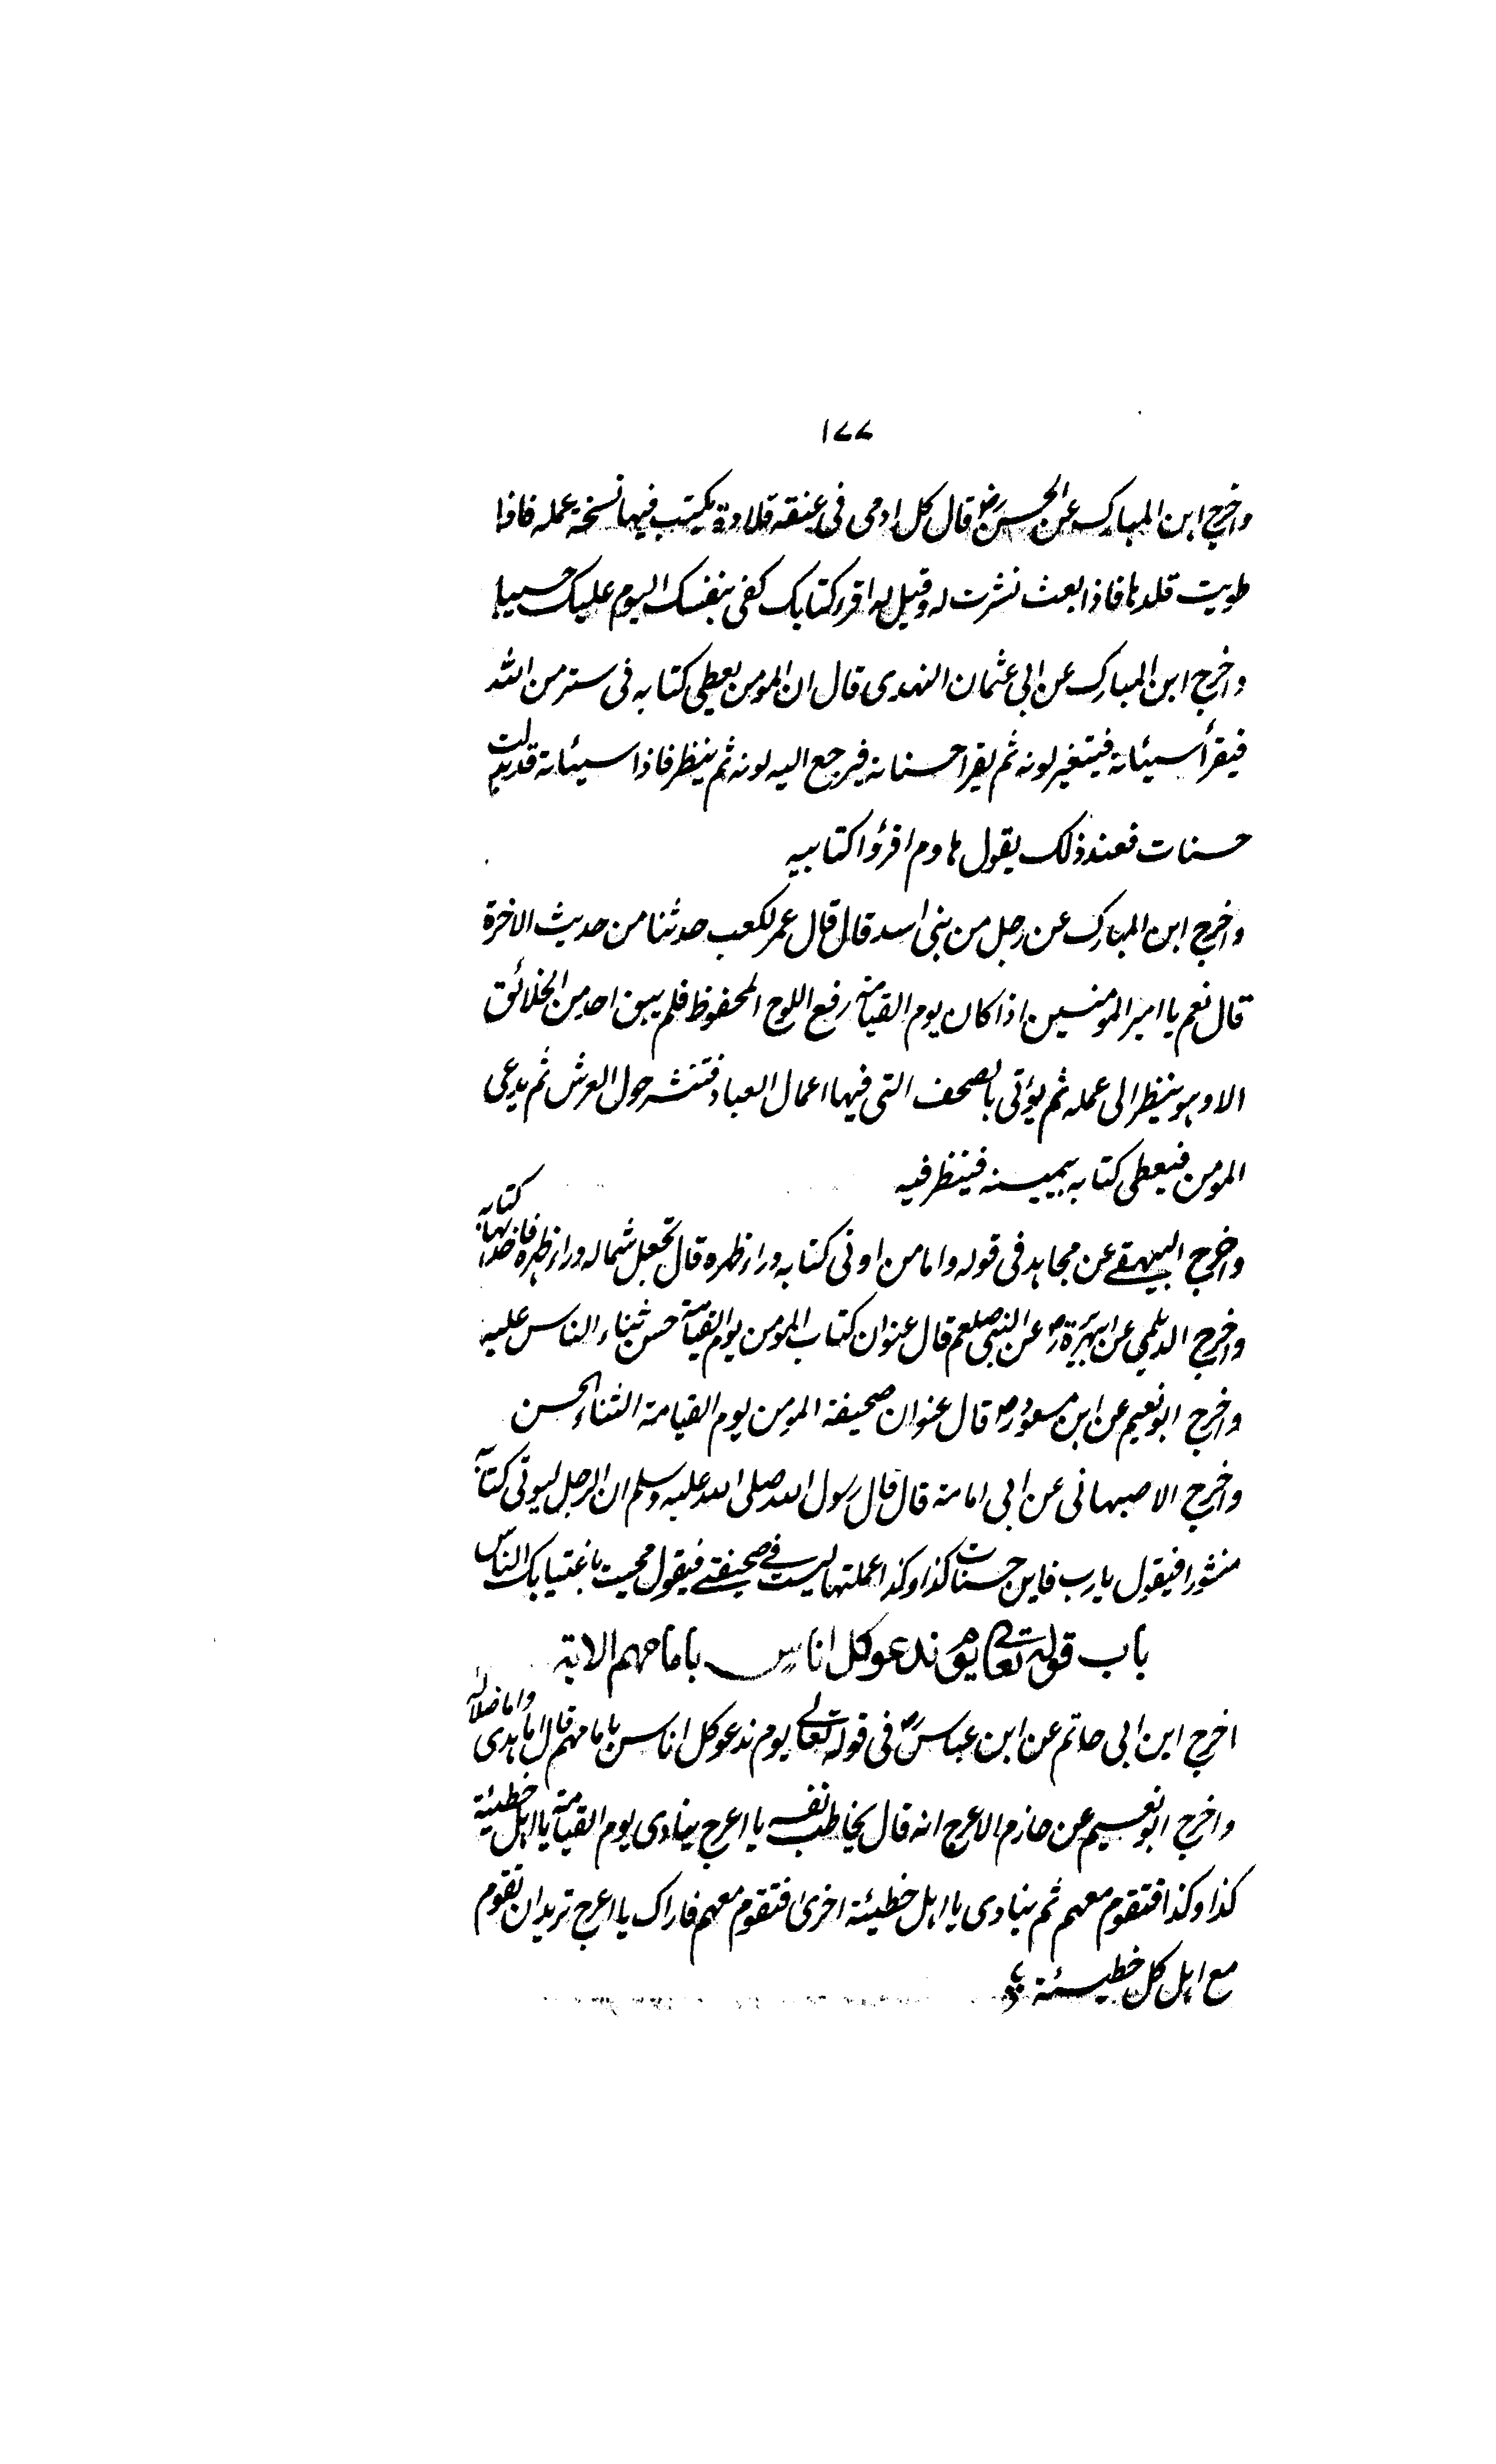 ۱۷۷
واخرج ابن المبارک عن الحسن رض قال کل ادمی فی عنقہ قلادة یکتب فیہا نسخة عملہ فاذا
طویت قلدہا فاذا بعث نشرت لہ وقیل لہ اقرء کتابک کفی بنفسک الیوم علیک حسیبا
واخرج ابن المبارک عن ابی عثمان النہدی قال ان المومن یعطی کتابہ فی ستر من اللہ
فیقرأ سیئاتہ فیتغیر لونہ ثم یقرأ حسناتہ فیرجع الیہ لونہ ثم ینظر فاذا سیئاتہ قد بدلت
حسنات فعند ذلک یقول ہاوم اقرؤا کتابیہ
واخرج ابن المبارک عن رجل من بنی اسد قال قال عمر لکعب حدثنا من حدیث الاخرة
قال نعم یا امیر المومنین اذا کان یوم القیامة رفع اللوح المحفوظ فلم یبق احد من الخلائق
الا وہو ینظر الی عملہ ثم یؤتی بالصحف التی فیہا اعمال العباد فتنشر حول العرش ثم یدعی
المومن فیعطی کتابہ بیمینہ فینظر فیہ
واخرج البیہقے عن مجاہد فی قولہ واما من اوتی کتابہ وراء ظہرہ قال تجعل شمالہ وراء ظہرہ فیاخذ بہا کتابہ
واخرج الدیلمی عن ابی ہریرة رض عن النبی صلعم قال عنوان کتاب المومن یوم القیامة حسن ثناء الناس علیہ
واخرج ابو نعیم عن ابن مسعود رض قال عنوان صحیفة المومن یوم القیامة الثناء الحسن
واخرج الاصبہانی عن ابی امامة قال قال رسول اللہ صلی اللہ علیہ وسلم ان الرجل لیوتی کتابہ
منشورا فیقول یا رب فاین حسنات کذا وکذا عملتہا لیست فے صحیفتے فیقول محیت باغتیابک الناس
باب قولہ تعالی یوم ندعو کل اناس بامامہم الایة
اخرج ابن ابی حاتم عن ابن عباس رض فی قولہ تعالے یوم ندعو کل اناس بامامہم قال امام ہدی وامام ضلالة
واخرج ابو نعیم عن حازم الاعرج انہ قال یخاطب نفسہ یا اعرج ینادی یوم القیامة یا اہل خطیئة
کذا وکذا فتقوم معہم ثم ینادی یا اہل خطیئة اخری فتقوم معہم فاراک یا اعرج ترید ان تقوم
مع اہل کل خطیئة